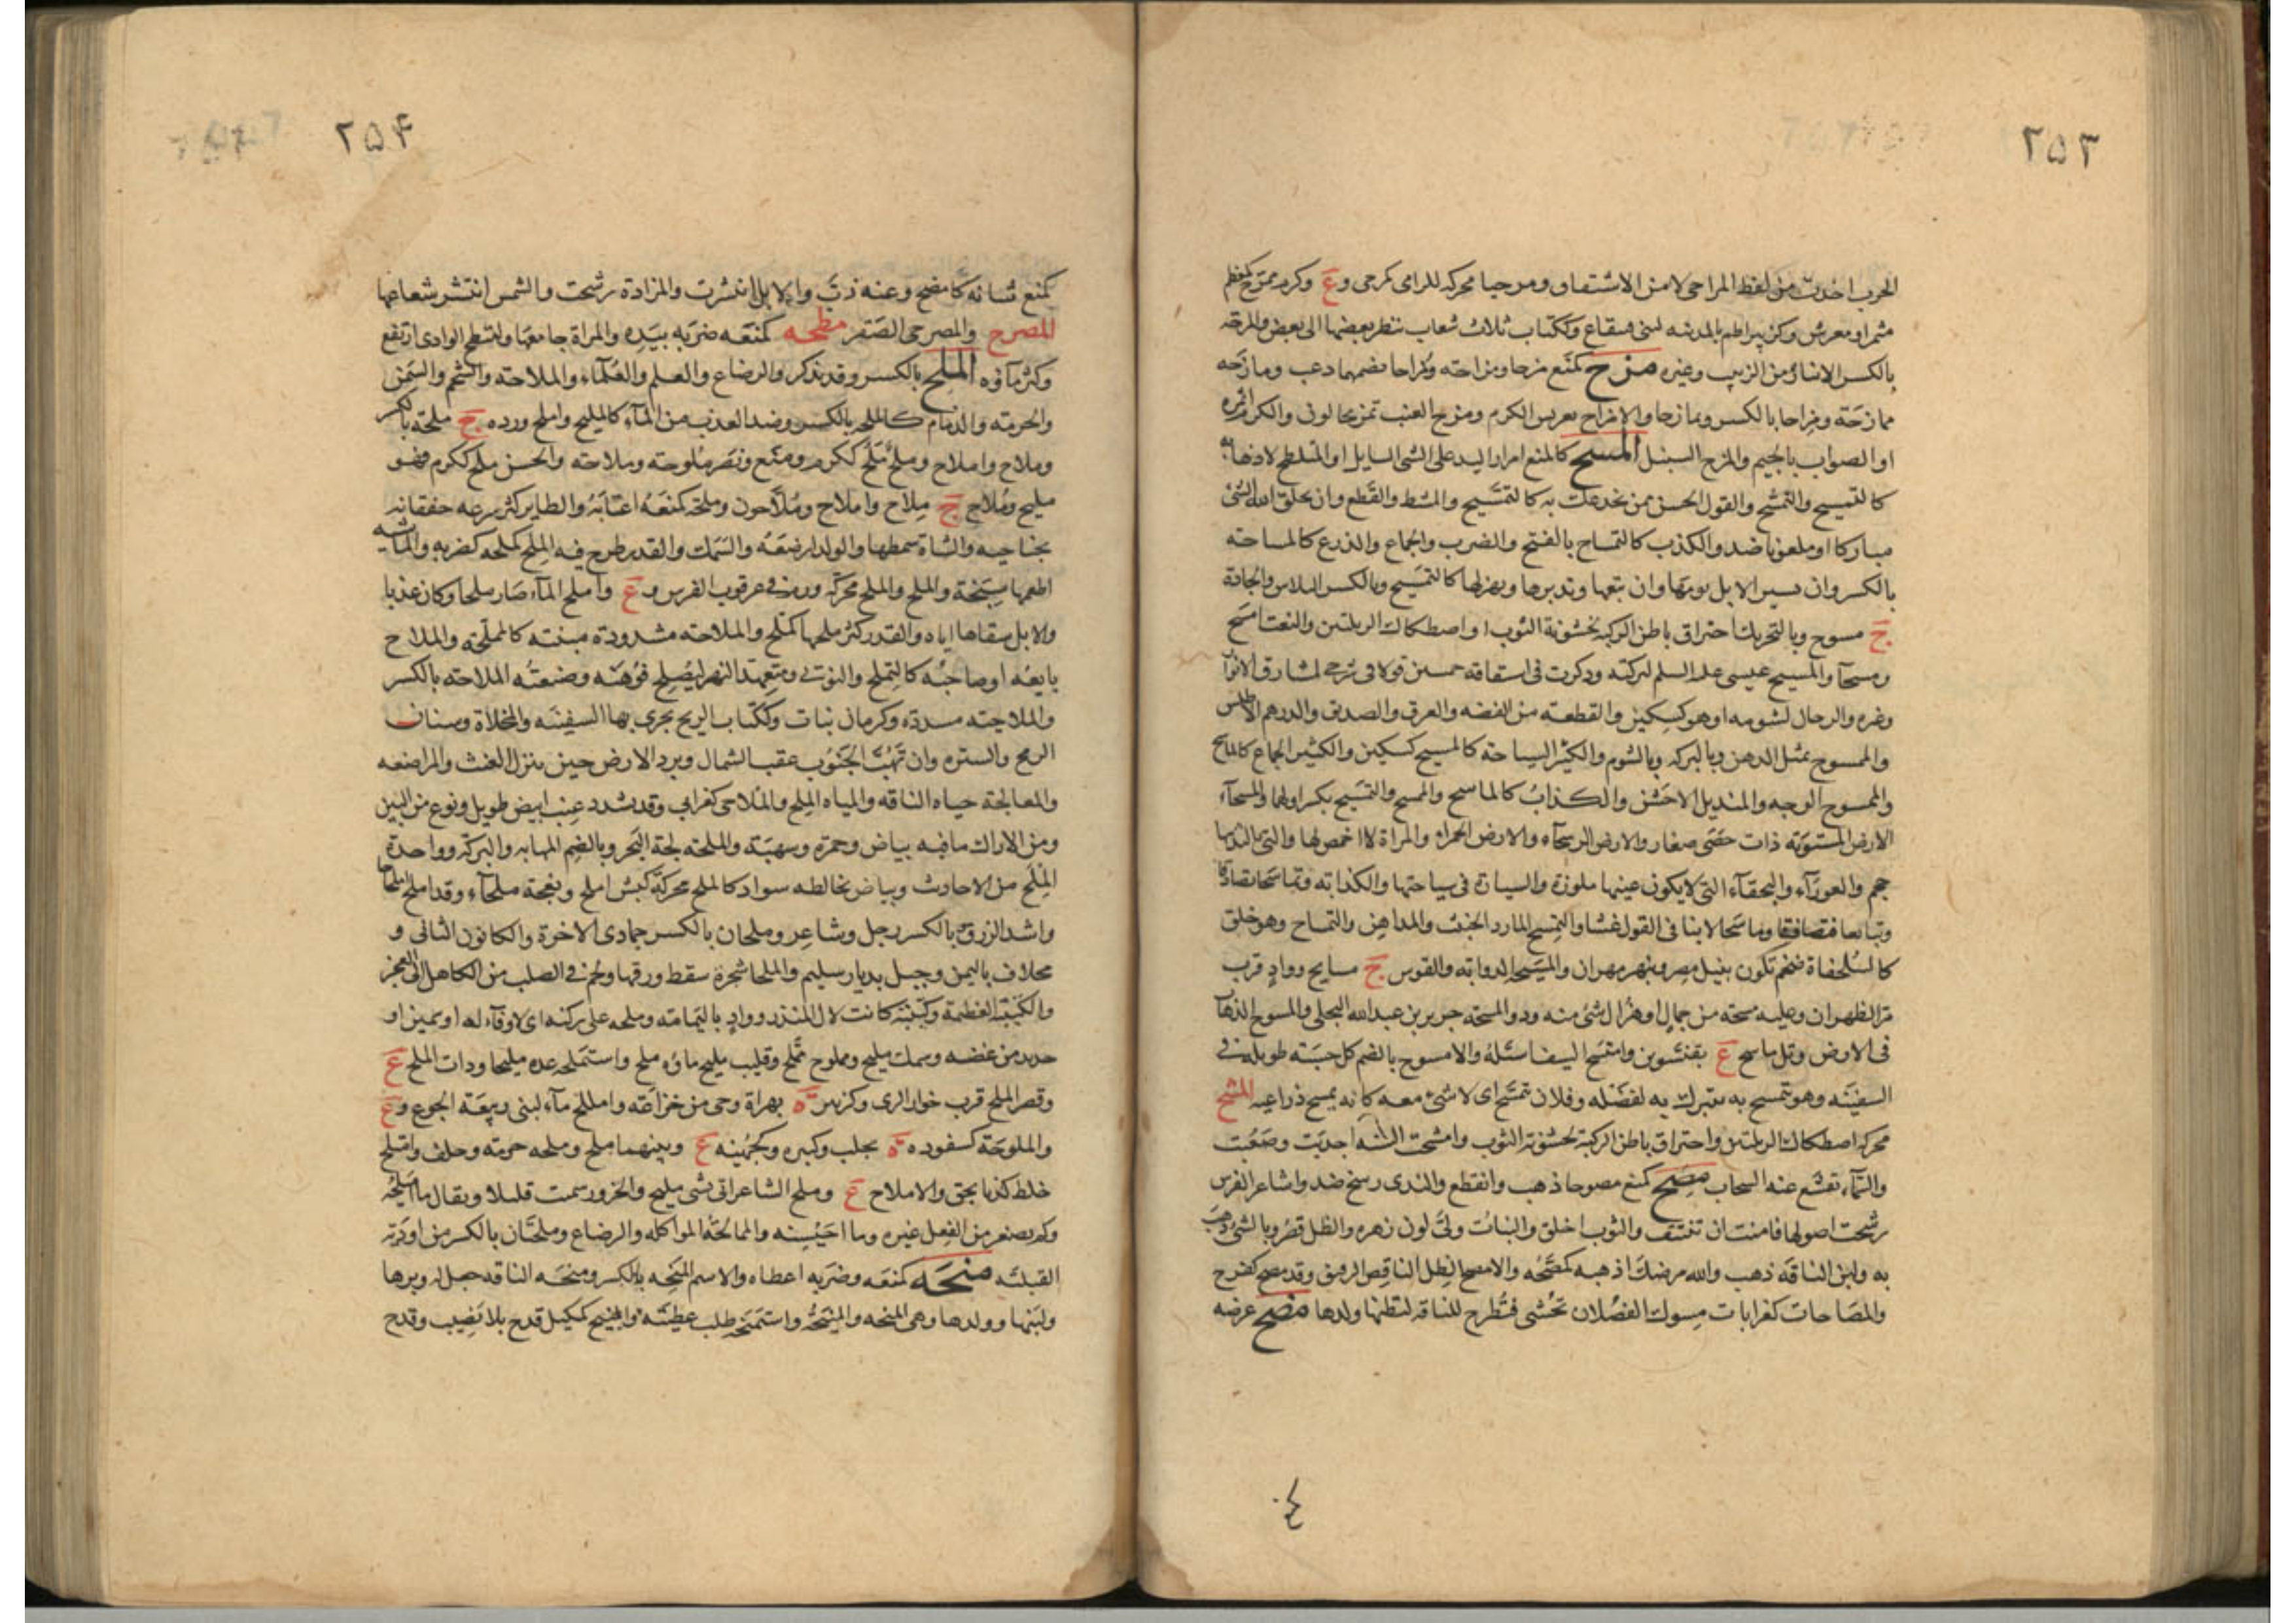 ٢٥٣
الحرب اخذت من لفظ المراحى لا من الاشتقاق ومرحيا محركه للرامى كرحى و ع وكرم ممرح كمعظم
مثمر او معرش وكزبير اطم بالمدينه لبنى قينقاع وككتاب ثلاث شعاب ينظر بعضها الى بعض والمرحه
بالكسر الانبار من الزبيب وغيره مزح كمنع مزحا ومزاحة ومزاحا بضمهما دعب ومازحه
ممازحة ومزاحا بالكسر وتمازحا والامزاح تعريش الكرم ومزح العنب تمزيحا لون والكرم اثمر
او الصواب بالجيم والمزح السنبل المسح كالمنع امرار اليد على الشى السايل او المتلطخ لاذهابه
كالتمسيح والتمسح والقول الحسن ممن يخدعك به كالتمسيح والمشط والقطع وان يخلق الله الشئ
مباركا او ملعونا ضد والكذب كالتمساح بالفتح والضرب والجماع والذرع كالمساحة
بالكسر وان تسير الابل يومها وان تتعبها وتدبرها وتهزلها كالتمسيح وبالكسر البلاس والجادة
ج مسوح وبالتحريك احتراق باطن الركبة لخشونة الثوب او اصطكاك الربلتين والنعت امسح
ومسحآ والمسيح عيسى عليه السلم لبركته وذكرت فى اشتقاقه خمسين قولا فى شرحى لمشارق الانوار
وغيره والدجال لشومه او هو كسكين والقطعة من الفضة والعرق والصديق والدرهم الاطلس
والممسوح بمثل الدهن وبالبركه وبالشوم والكثير السياحة كالمسيح كسكين والكثير الجماع كالماسح
والممسوح الوجه والمنديل الاخشن والكذاب كالماسح والممسح والتمسح بكسر اولهما والمسحآء
الارض المستوية ذات حصى صغار والارض الرسحآء والارض الحمراء والمراة لا اخمص لها والتى ما لثدييها
حجم والعورآء والبخقآء التى لا يكون عينها ملوزة والسيارة فى سياحتها والكذابة وتماسحا تصادقا
وتبايعا فتصافقا وماسحا لاينا فى القول غشا والتمسح المارد الخبيث والمداهن والتمساح وهو خلق
كالسلحفاة ضخم تكون بنيل مصر وبنهر مهران والمسيحه الذوابة والقوس ج مسايح وواد قرب
مر الظهران وعليه مسحة من جمال او هزال شئ منه وذو المسحة جرير بن عبدالله البجلى والمسوح الذهاب
فى الارض وتل ماسح ع بقنسرين وامتسح السيف استله والامسوح بالضم كل خشبة طويلة فى
السفينه وهو يتمسح به يتبرك به لفضله وفلان يتمسح اى لا شئ معه كانه يمسح ذراعيه المشح
محركه اصطكاك الربلتين واحتراق باطن الركبة لخشونة الثوب وامشحت السنة اجدبت وصعبت
والسمآء تقشع عنه السحاب مصح كمنع مصوحا ذهب وانقطع والثدى رسخ ضد واشاعر الفرس
رسخت اصولها فامنت ان تنتتف والثوب اخلق والنبات ولى لون زهره والظل قصر وبالشئ ذهب
به ولبن الناقة ذهب والله مرضك اذهبه كمصحه والامصح الظل الناقص الرقيق وقد مصح كفرح
والمصاحات كغرابات مسوك الفصلان تحشى فتطرح للناقة لتظنها ولدها مضح عرضه
٢٥۴
كمنع شانه كامضح وعنه ذب والابل انتشرت والمزادة رشحت والشمس انتشر شعاعها
المضرح والمضرحى الصقر مطحه كمنعه ضربه بيده والمراة جامعها وامتطح الوادى ارتفع
وكثر مآؤه الملح بالكسر وقد يذكر والرضاع والعلم والعلمآء والملاحة والشحم والسمن
والحرمة والذمام كالملح بالكسر وضد العذب من المآء كالمليح واملح ورده ج ملحة بالكسر
وملاح واملاح وملح ملح ككرم ومنع ونصر ملوحة وملاحة والحسن ملح ككرم فهو
مليح وملاح ج ملاح واملاح وملاحون وملحه كمنعه اغتابه والطاير كثر سرعه خفقانه
بجناحيه والشاة سمطها والولد ارضعه والسمك والقدر طرح فيه الملح كملحه كضربه والماشيه
اطعمها سبخة والملح والملح محركة ورم فى عرقوب الفرس و ع واملح المآء صار ملحا وكان عذبا
والابل سقاها اياه والقدر كثر ملحها كملح والملاحة مشدودة منبته كالمملحة والملاح
بايعه او صاحبه كالمتملح والنوتى ومتعهد النهر ليصلح فوهته وصنعته الملاحة بالكسر
والملاحية مشددة وكرمان نبات وككتاب الريح يجرى بها السفينه والمخلاة وسنان
الرمح والستره وان تهب الجنوب عقب الشمال وبرد الارض حين ينزل الغيث والمراضعه
والمعالجة حياء الناقه والمياه الملح والملاحى كغرابى وقد يشدد عنب ابيض طويل ونوع من التين
ومن الاراك ما فيه بياض وحمرة وشهبة والملحه لجة البحر وبالضم المهابه والبركة وواحدة
الملح من الاحاديث وبياض يخالطه سواد كالملح محركة كبش املح ونعجة ملحآء وقد املح املحاحا
واشد الزرق بالكسر رجل وشاعر وملحان بالكسر جمادى الاخرة والكانون الثانى و
مخلاف باليمن وجبل بديار سليم والملحا شجرة سقط ورقها ولحم فى الصلب من الكاهل الى العجز
والكتيبة العظيمة وكتيبة كانت لال المنذر وواد باليمامة وملحه على ركبته اى لا وفآء له او سمين او
حديد من غضبه وسمك مليح ومملوح مملح وقليب مليح ماؤه ملح واستملحه عده مليحا وذات الملح ع
وقصر الملح قرب خوار الرى وكزبير ه بهراة وحى من خزاعة واميلح مآء لبنى ربيعة الجوع و ع
والملوحة كسفوده ه بحلب وكبيره وكجهينه ع وبينهما ملح وملحه حرمة وحلف وامتلح
خلط كذبا بحق والاملاح ع وملح الشاعر اتى بشئ مليح والجزور سمنت قليلا ويقال ما اميلحه
ولم يصغر من الفعل غيره وما احيسنه والممالحة المواكلة والرضاع وملحتان بالكسر من اودية
القبلية منحه كمنعه وضربه اعطاه والاسم المنحة بالكسر ومنحه الناقة جعل له وبرها
ولبنها وولدها وهى المنحه والمنيحة واستمنحه طلب عطيته والمنيح كميكيل قدح بلا نصيب وقدح